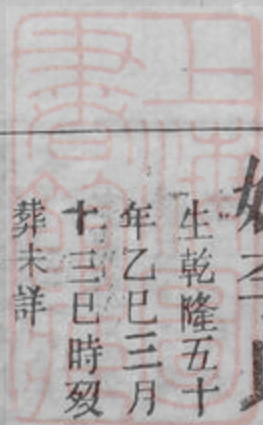 生乾隆五十
年乙巳三月
十三巳時歿
葬未詳